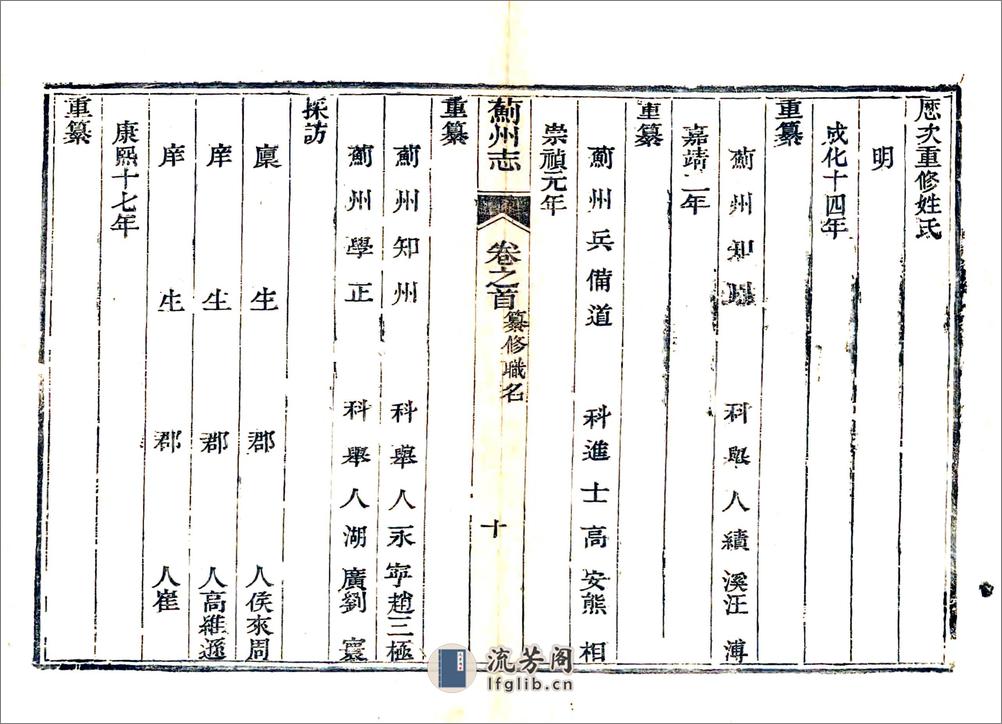 歷次重修姓氏
明
成化十四年
重纂
薊州知州 科舉人績溪汪溥
嘉靖二年
重纂
薊州兵備道 科進士高安熊相
崇禎元年
薊州志 卷之首 纂修職名 十
重纂
薊州知州 科舉人永寧趙三極
薊州學正 科舉人湖廣劉寰
採訪
廩生 郡人侯來周
庠生 郡人高維遜
庠生 郡人崔
康熙十七年
重纂
流芳阁
lfglib.cn